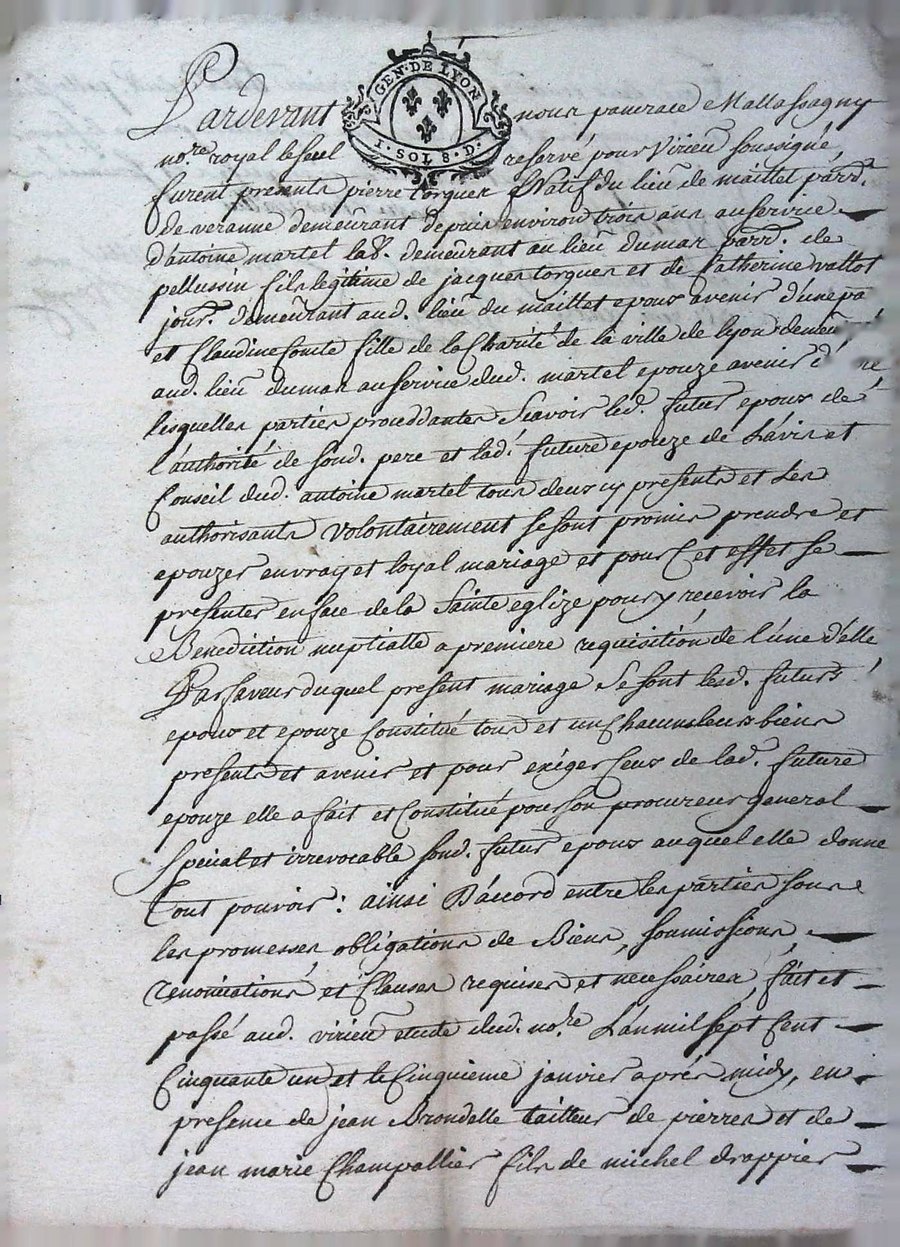 GEN. DE LYON
I. SOL 8. D.
Pardevant nous pancrace Mallassagny
no.re royal le seul reservé pour Virieu soussigné,
furent presents pierre torgues Natif du lieu de maillet parr.
de veranne demeurant depuis environ trois ans au service
d'antoine martel lab. demeurant au lieu du mas parr. de
pellussin fils legitime de jacques torgues et de Catherine vallot
jour. demeurant aud. lieu du maillet epoux avenir d'une pa
et Claudine Comte fille de la Charité de la ville de lyon demeu
aud. lieu du mas au service dud. martel epouze avenir d' ne
lesquelles parties proceddantes Scavoir led. futur epoux de
l'authorité de sond. pere et lad. future epouze de L'avis et
Conseil dud. antoine martel tous deux cy presents et Les
authorisants volontairement se sont promis prendre et
epouzer en vray et loyal mariage et pour Cet effet se
presenter en face de la Sainte eglize pour y recevoir la
Benediction nuptialle a premiere requisition de l'une d'elle
Par faveur duquel present mariage se sont lesd. futurs
epoux et epouze Constitué tous et un Chacuns leurs biens
presents et avenir et pour exiger Ceux de lad. future
epouze elle a fait et Constitué pour son procureur general
special et irrevocable sond. futur epoux auquel elle donne
tout pouvoir: ainsi D'accord entre les parties sous
les promesses obligations de Biens, soumissions
renonciations et Clauses requises et necessaires, fait et
passé aud. virieu etude dud. no.re L'an mil sept Cent
Cinquante un et le Cinquieme janvier aprés midy, en
presence de jean Brondelle tailleur de pierres et de
jean marie Champallier fils de michel drappier